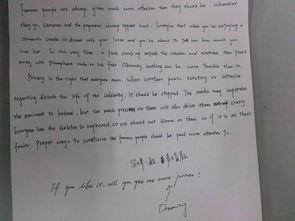 Famous people are always given much more attention than they should be. Wherever
they go, Cameras and the paparazzi always appear next. Imagine that when you're enjoying a
romantic candle-lit dinner with your lover and you're about to tell her how much you
love her. In this very time, a flash shows up outside the window and someone the
away with triumphant smile on his face. Obviously nothing can be more terrible than is.
Privacy is the right that everyone owns. When constant public or intensive
reporting disturb the life of the celebrity, it should be stopped. The media may supervise
the eminent to behave, but too much pressure on them will also drive them crazy.
Everyone has the skeleton in cupboard, so we should not blame on them as if it is all their
faults. Proper ways to scrutinize the famous people should be paid more attention to.
If you like it, will you give me more praise?
Dreaming